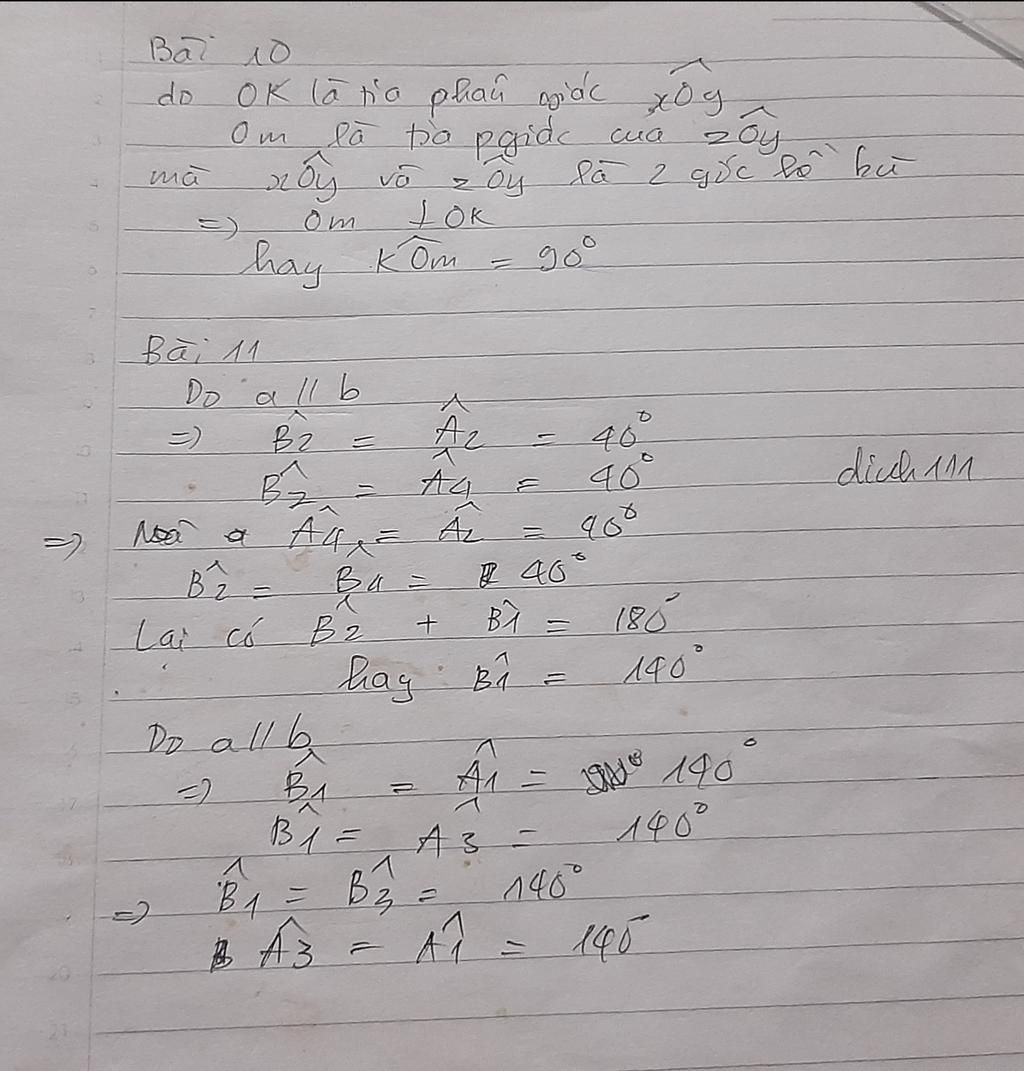 Bài 10
do OK là tia phân giác xÔy
Om là tia pgiác của zÔy
mà xÔy và zÔy là 2 góc kề bù
=> Om ⊥ OK
hay KÔm = 90°
Bài 11
Do a // b
=> B̂2 = Â2 = 40°
B̂2 = Â4 = 40°
=> Mà Â4 = Â2 = 40°
B̂2 = B̂4 = 40°
Lại có B̂2 + B̂1 = 180°
hay B̂1 = 140°
Do a // b
=> B̂1 = Â1 = 140°
B̂1 = Â3 = 140°
=> B̂1 = B̂3 = 140°
Â3 = Â1 = 140°